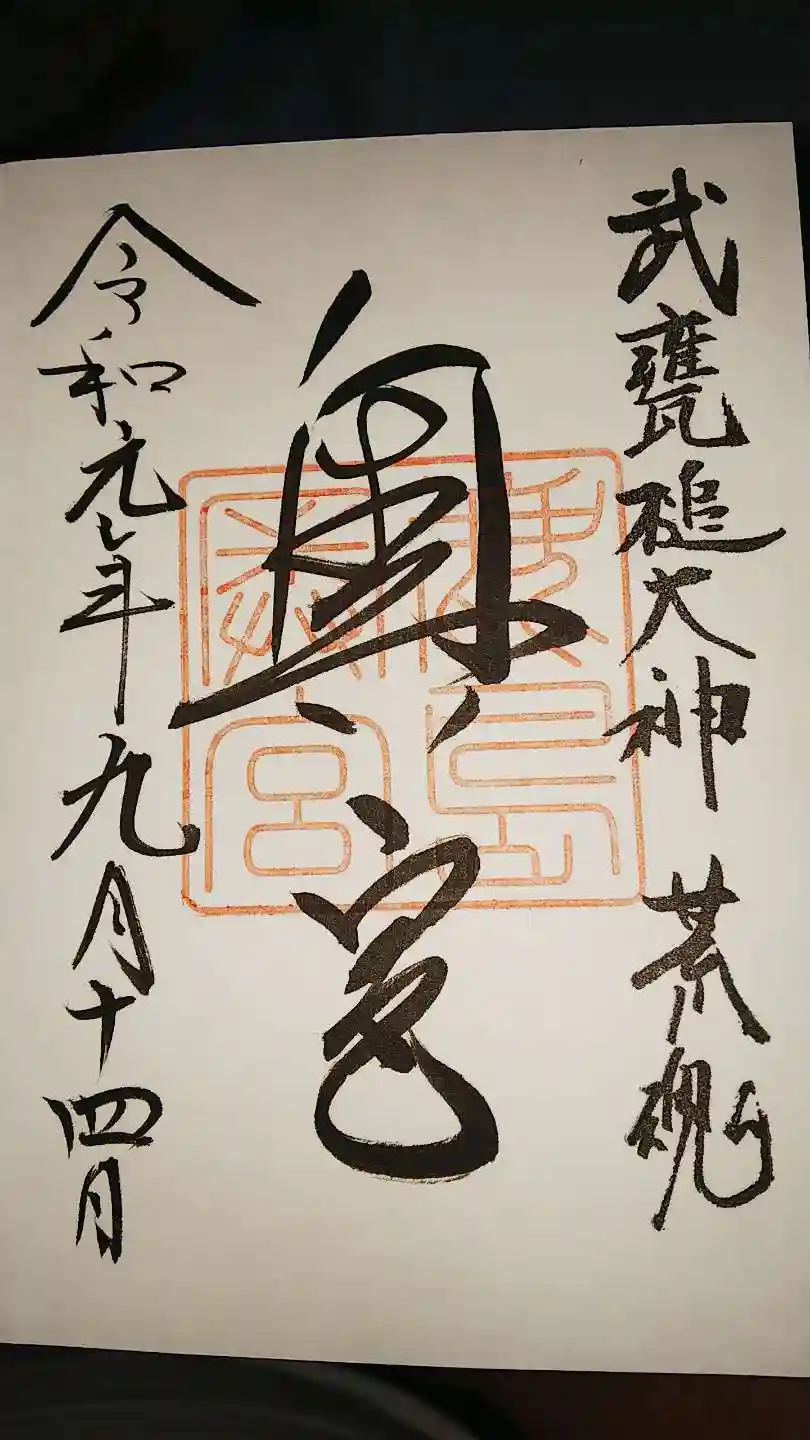 武甕槌大神 荒魂
奥宮
鹿島奥宮
令和元年九月十四日